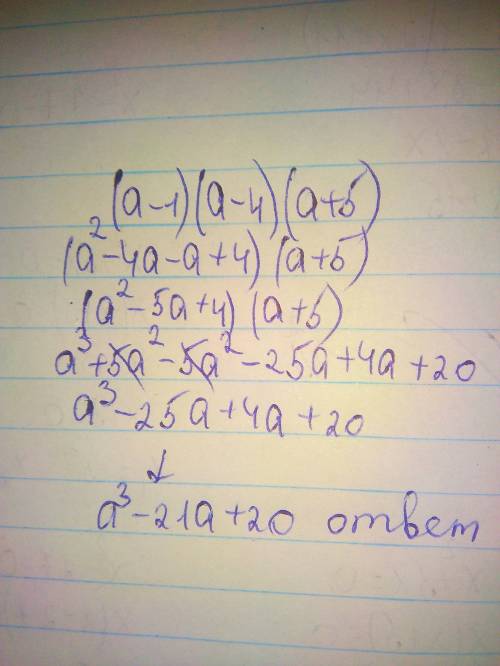 (a-1)(a-4)(a+5)
(a²-4a-a+4)(a+5)
(a²-5a+4)(a+5)
a³+5a²-5a²-25a+4a+20
a³-25a+4a+20
↓
a³-21a+20 ответ